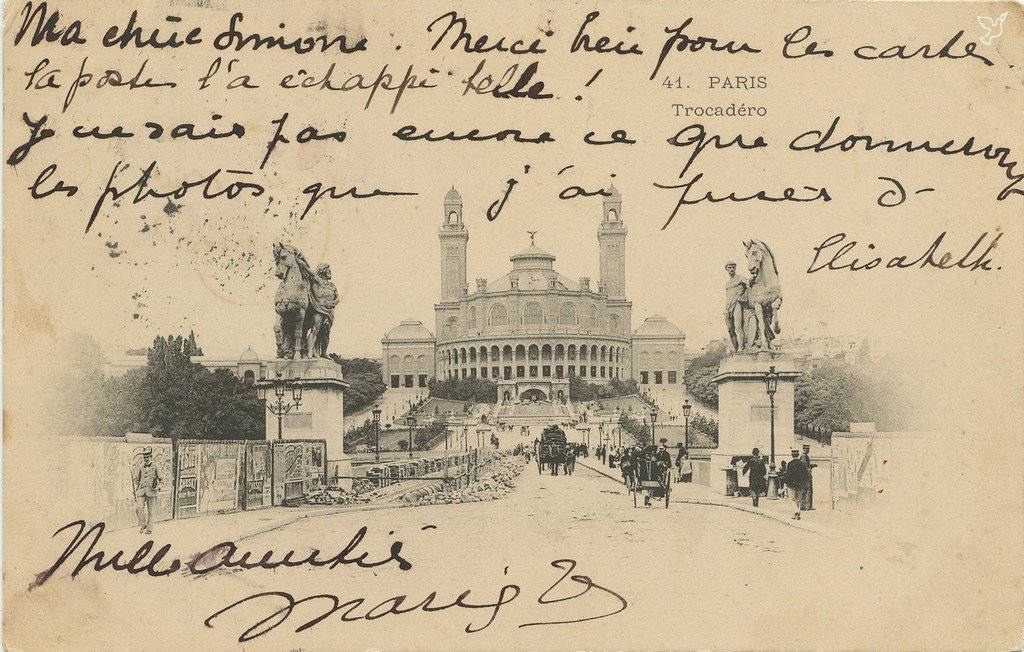 Ma chère Simone. Merci bien pour les cartes
la poste l'a échappé belle !
41. PARIS
Trocadéro
Je ne sais pas encore ce que donneront
les photos que j'ai prises d'
Elisabeth.
Mille amitiés